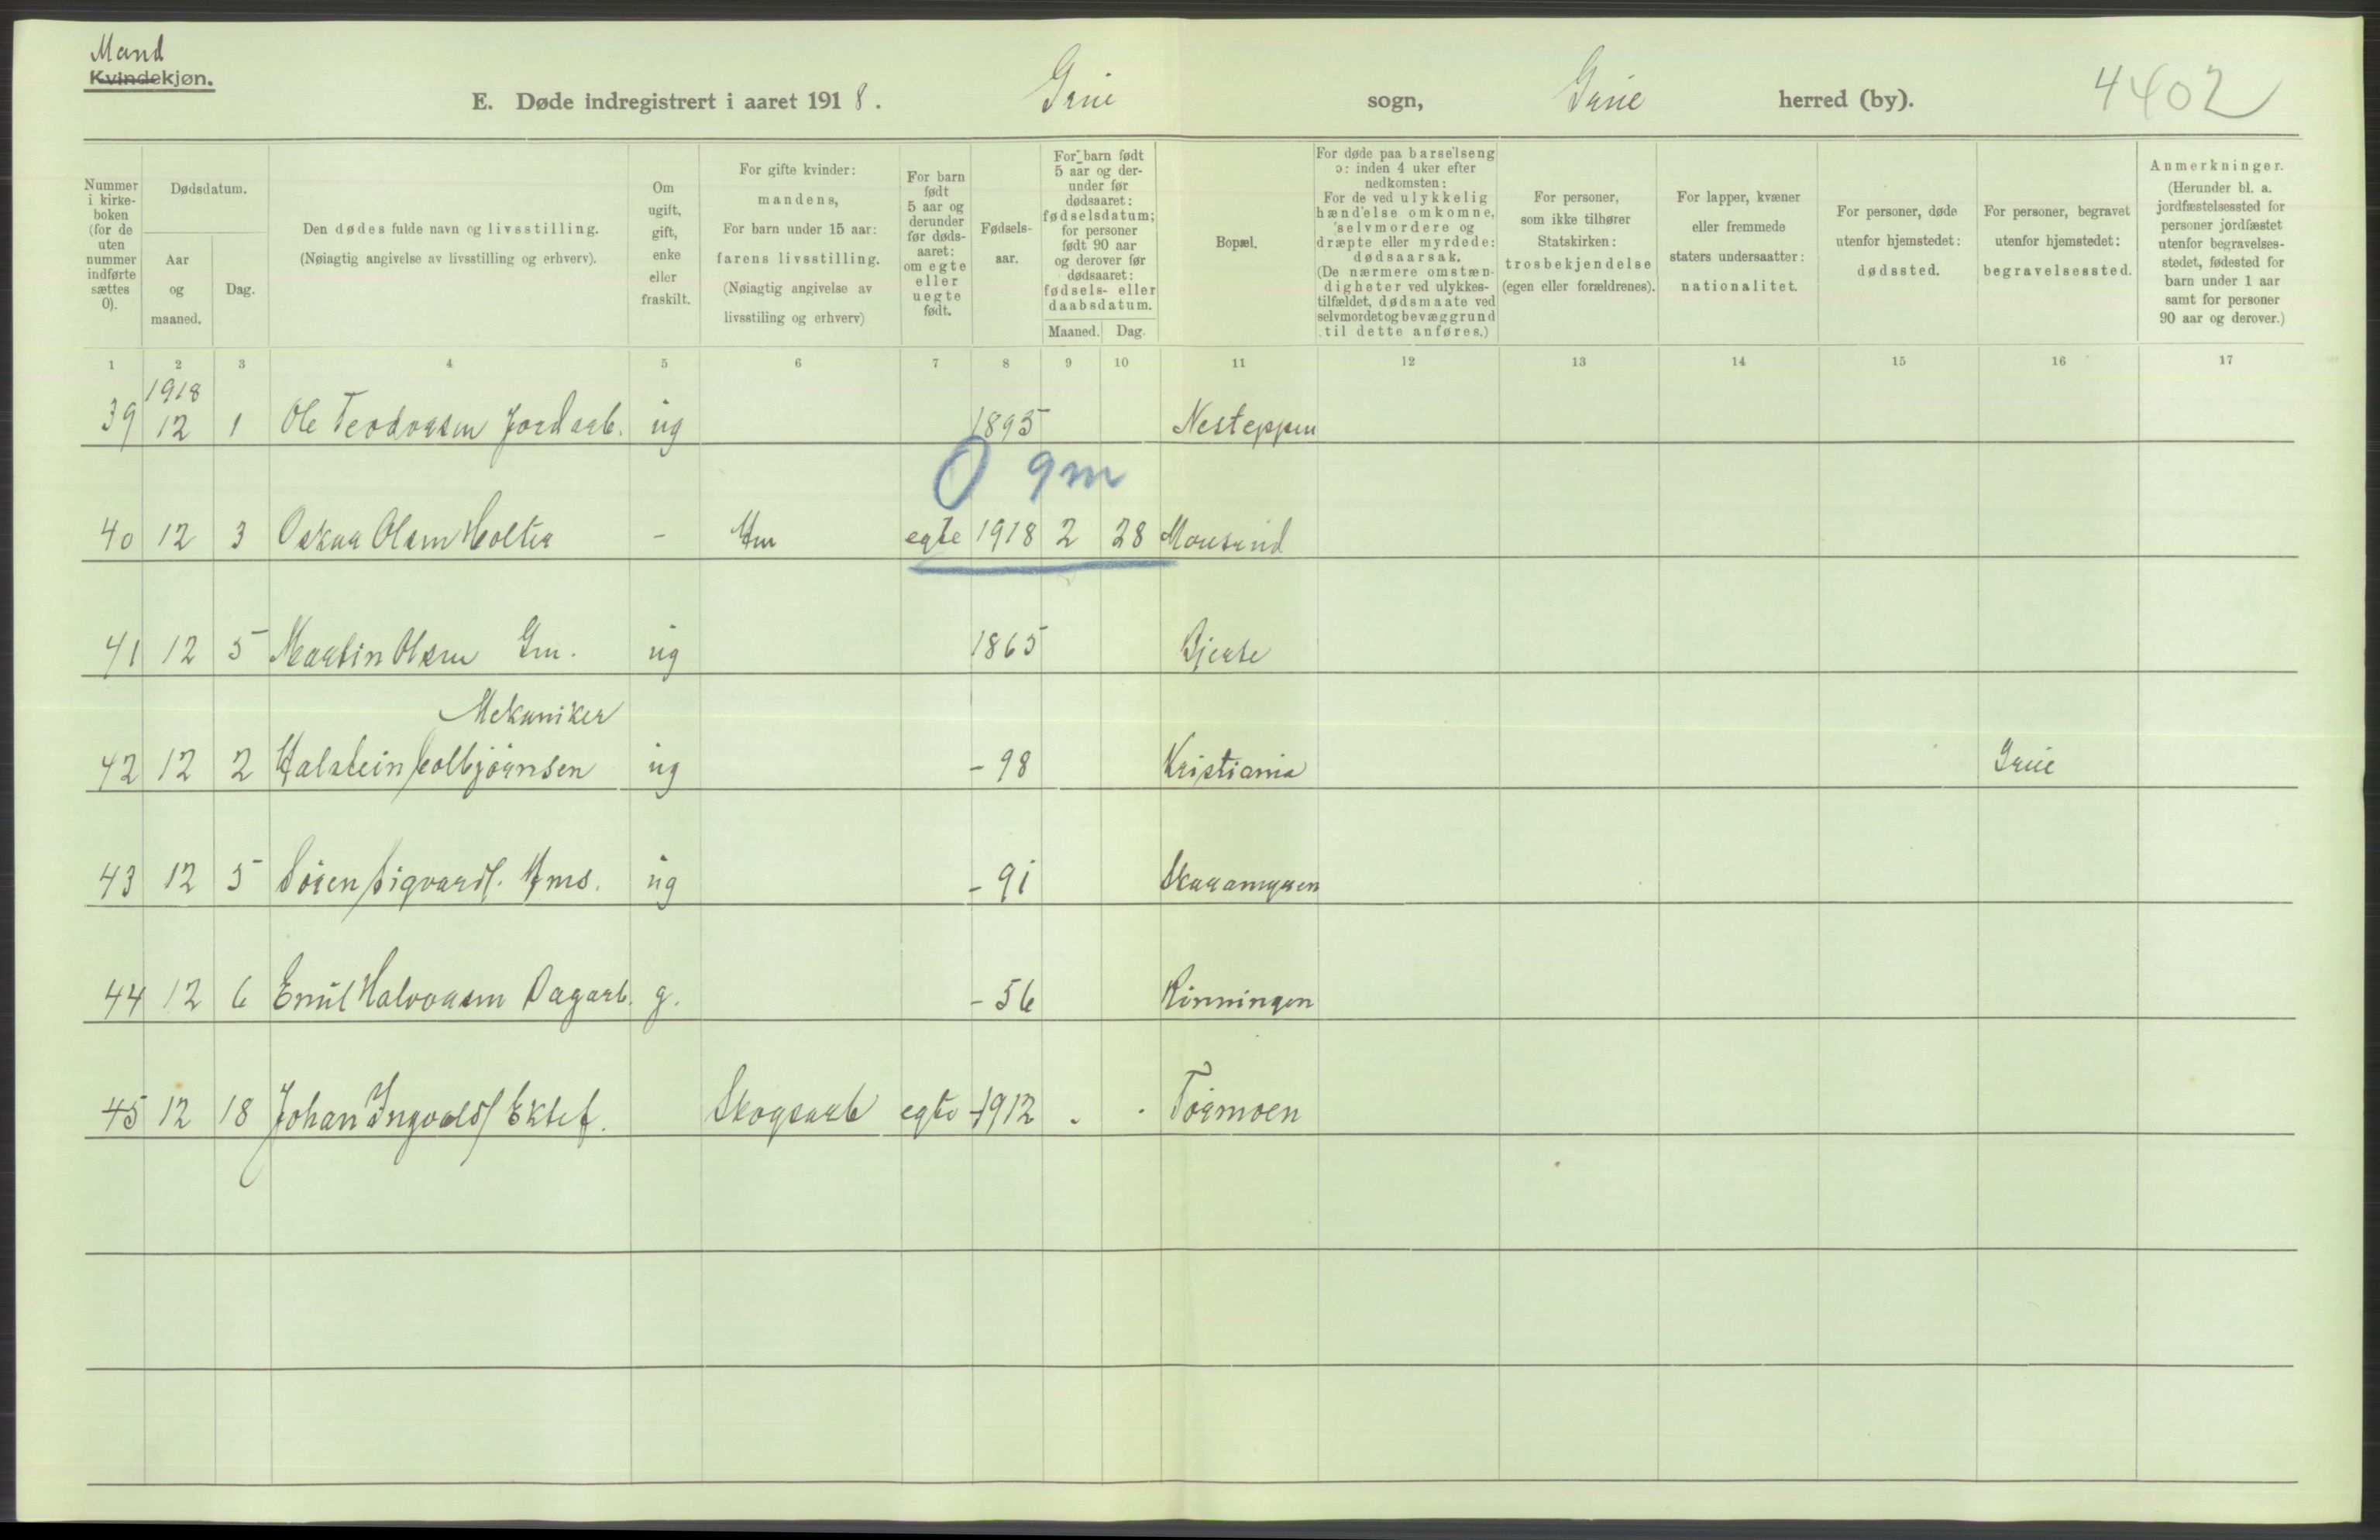 Mand
Kvindekjøn.
E. Døde indregistrert i aaret 1918. Grue sogn, Grue herred (by). 4402
Nummer i kirke-boken (for de uten nummer indførte sættes 0).
Dødsdatum.
Aar og maaned.
Dag.
Den dødes fulde navn og livsstilling.
(Nøiagtig angivelse av livsstilling og erhverv).
Om ugift, gift, enke eller fraskilt.
For gifte kvinder:
mandens,
For barn under 15 aar:
farens livsstilling.
(Nøiagtig angivelse av
livsstiling og erhverv)
For barn født 5 aar og derunder før døds-aaret: om egte eller uegte født.
Fødsels-aar.
For barn født 5 aar og der-under før dødsaaret: fødselsdatum; for personer født 90 aar og derover før dødsaaret: fødsels- eller daabsdatum.
Maaned. Dag.
Bopæl.
For døde paa barselseng ɔ: inden 4 uker efter nedkomsten: For de ved ulykkelig hændelse omkomne, selvmordere og dræpte eller myrdede: dødsaarsak. (De nærmere omstæn-digheter ved ulykkes-tilfældet, dødsmaate ved selvmordet og bevæggrund til dette anføres.)
For personer, som ikke tilhører Statskirken: trosbekjendelse (egen eller forældrenes).
For lapper, kvæner eller fremmede staters undersaatter: nationalitet.
For personer, døde utenfor hjemstedet: dødssted.
For personer, begravet utenfor hjemstedet: begravelsessted.
Anmerkninger. (Herunder bl. a. jordfæstelsessted for personer jordfæstet utenfor begravelses-stedet, fødested for barn under 1 aar samt for personer 90 aar og derover.)
1 2 3 4 5 6 7 8 9 10 11 12 13 14 15 16 17
1918
39 12 1 Ole Teodorsen Jordarb. ug 1895 Nesteppen
0 9m
40 12 3 Oskar Olsen Holter - Hm egte 1918 2 28 Mousand
41 12 5 Martin Olsen Gm. ug 1865 Bjerke
Mekaniker
42 12 2 Halstein Kolbjørnsen ug - 98 Kristiania Grue
43 12 5 Søren Sigvards. Hms. ug - 91 Skaramyren
44 12 6 Emil Halvorsen Dagarb. g. - 56 Rinningen
45 12 18 Johan Ingvalds Ektef. Skogsarb egte 1912 - - Tørmoen